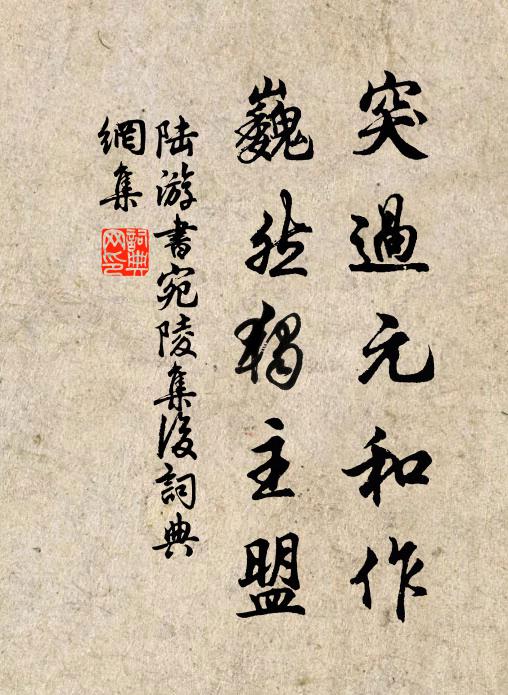 突過元和作
巍然獨主盟
陆游書宛陵集後詞典
網集
詞典
网印